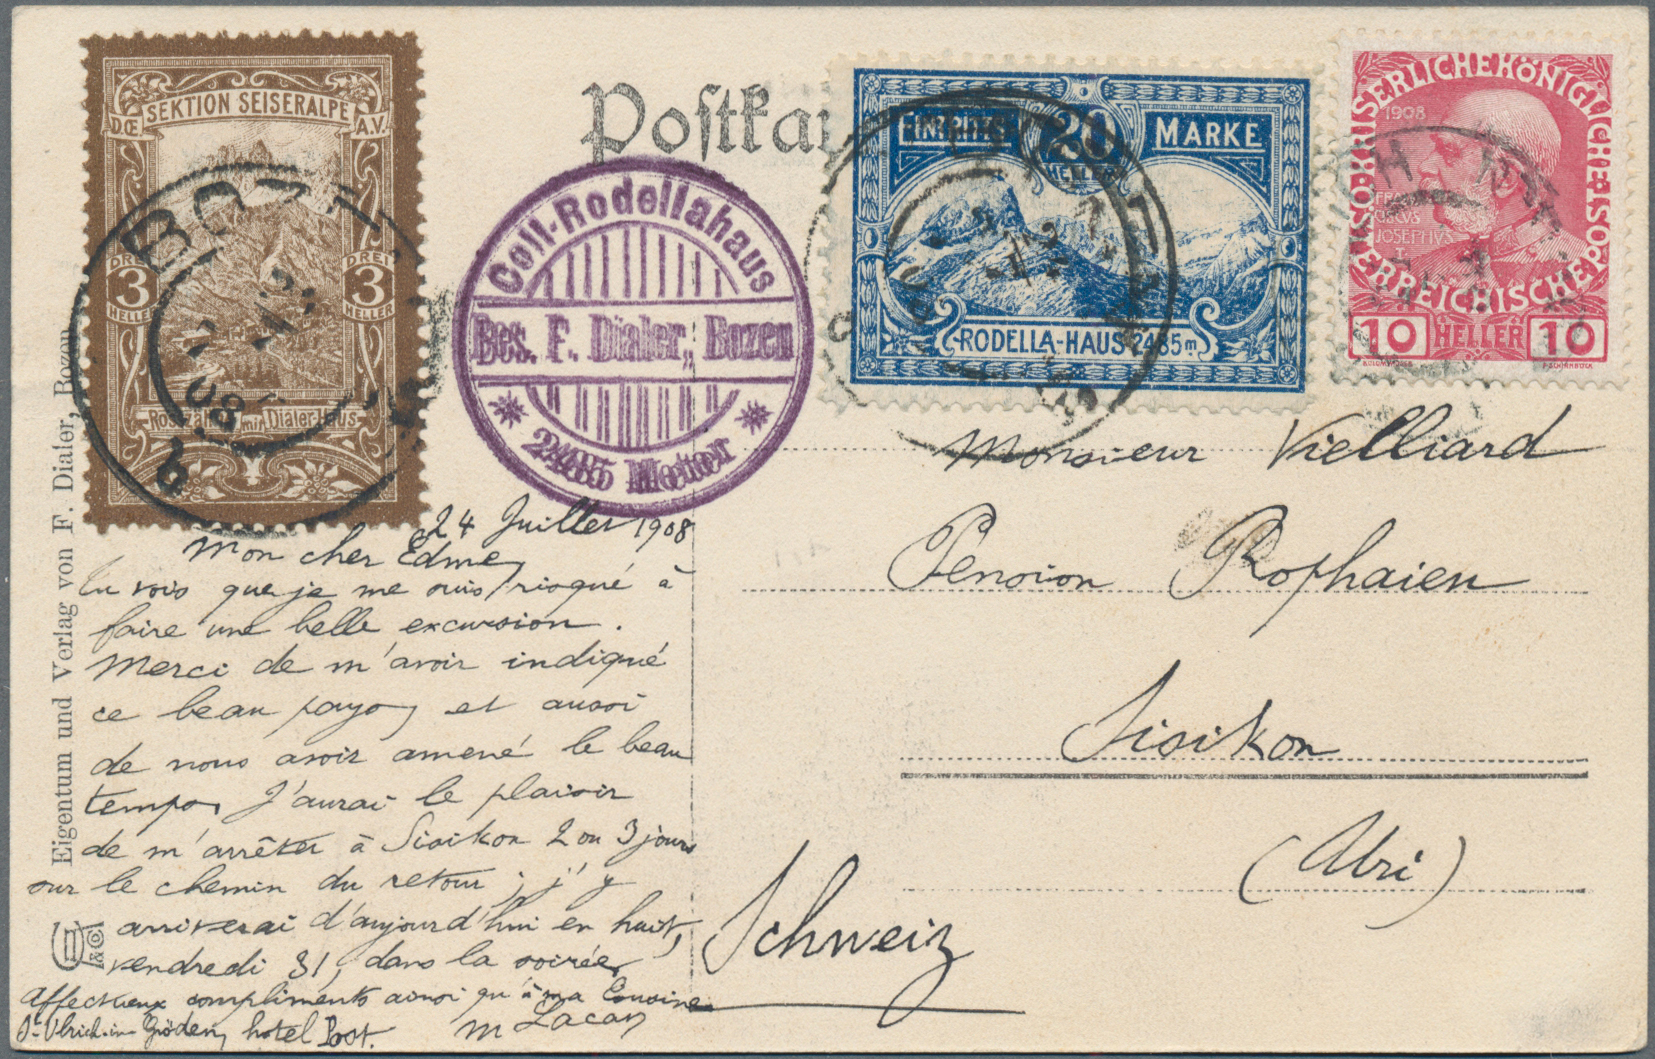 SEKTION SEISERALPE
D.Œ. A.V.
DREI 3 HELLER
DREI 3 HELLER
Roszähne mit Dialer-Haus
BOZEN
08
b
Postkar
Coll-Rodellahaus
Bes. F. Dialer, Bozen
2485 Meter
EINTRITTS 20 MARKE
HELLER
RODELLA-HAUS 2485m
KAISERLICHE KÖNIGLICHE
ÖSTERREICHISCHE POST
1908
FRAN
CISCVS
JOSEPHVS
I
10 HELLER 10
Eigentum und Verlag von F. Dialer, Bozen
24 Juillet 1908
Mon cher Edme,
Tu vois que je me suis risqué à
faire une belle excursion.
Merci de m'avoir indiqué
ce beau pays, et aussi
de nous avoir amené le beau
temps, J'aurai le plaisir
de m'arrêter à Sisikon 2 ou 3 jours
sur le chemin du retour ; j'y
arriverai d'aujourd'hui en huit,
vendredi 31, dans la soirée,
Affectueux compliments ainsi qu'à ma Cousine
M Lacan
St Ulrich-in-Gröden, hotel Post.
Monsieur Vielliard
Pension Rophaien
Sisikon
(Uri)
Schweiz